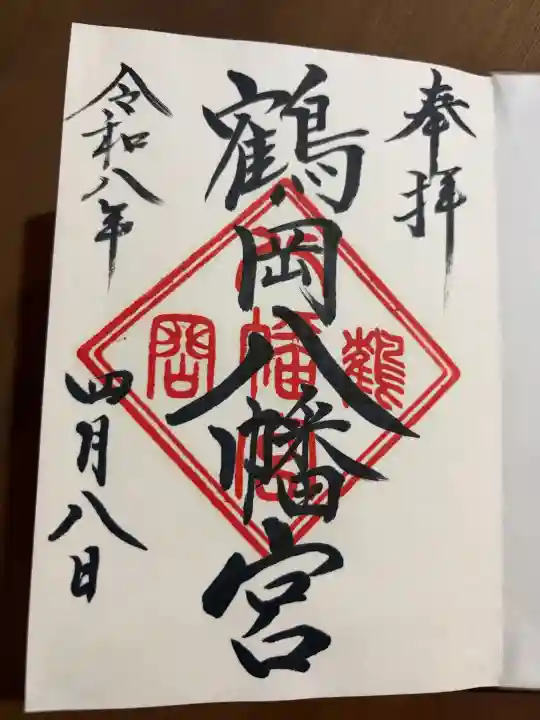 奉拝
鶴岡八幡宮
令和八年
四月八日
鶴
八幡宮
岡